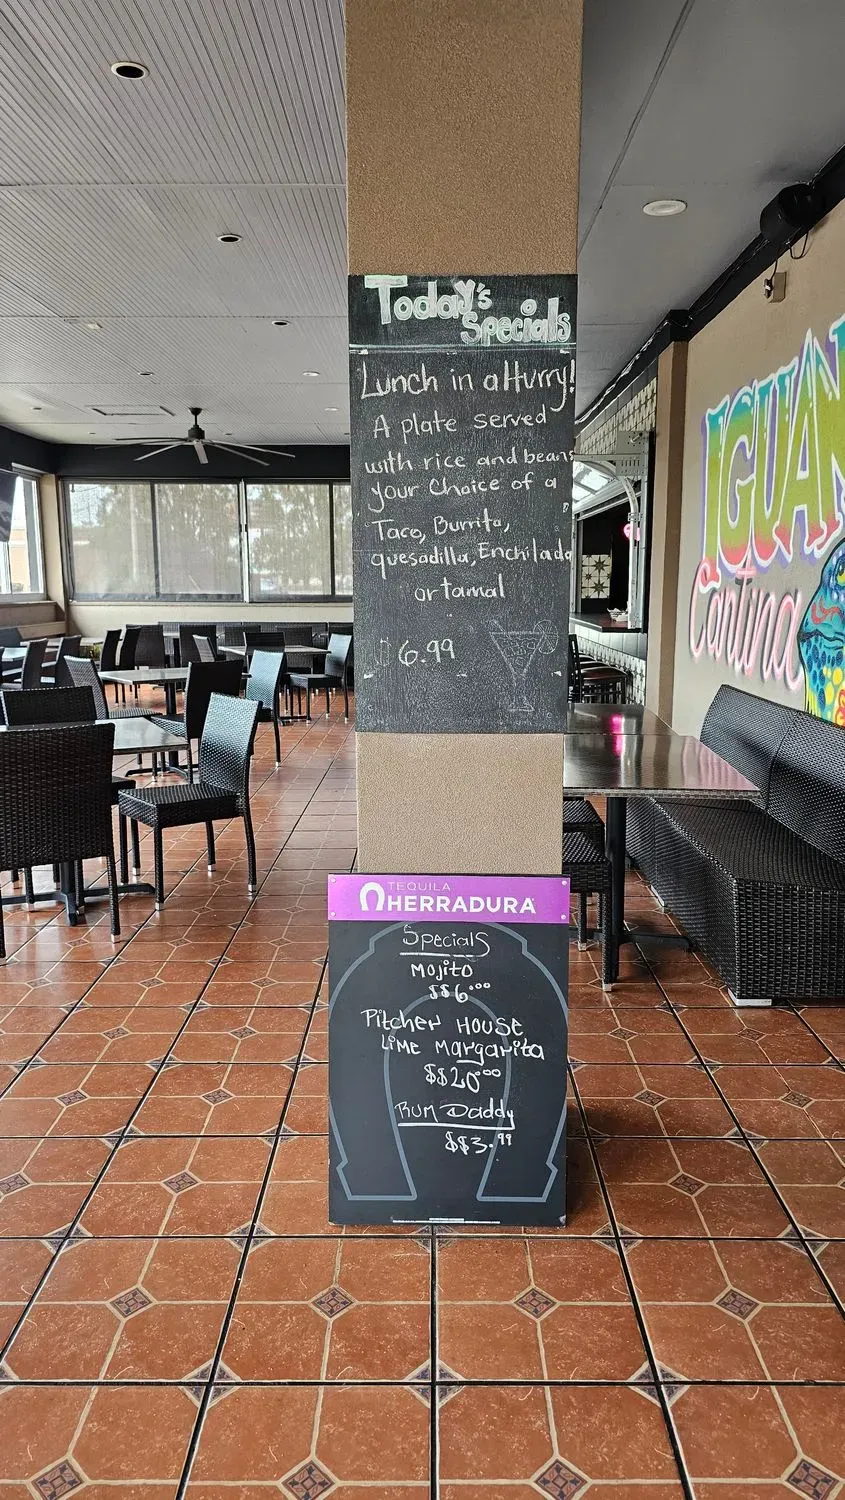 Today's
Specials
Lunch in a Hurry!
A plate served
with rice and beans
your Choice of a
Taco, Burrito,
quesadilla, Enchilada
or tamal
$6.99
TEQUILA
HERRADURA
Specials
Mojito
$$6.00
Pitcher House
Lime Margarita
$$20.00
Rum Daddy
$$3.99
IGUAN
Cantina